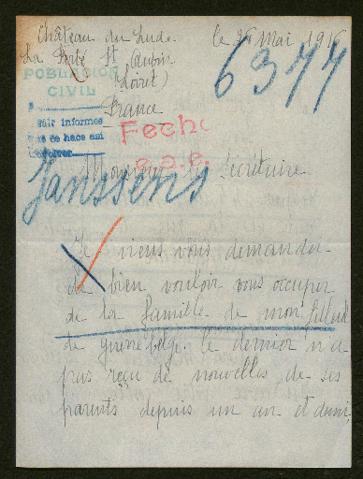 Château du Lude
le 26 Mai 1916
La Ferté St Aubin
(Loiret)
France
POBLACION
CIVIL
6377
Pedir informes
de hace
Fecho
Monsieur le Secrétaire
Janssens
Je viens vous demander
de bien vouloir vous occuper
de la famille de mon filleul
de guerre belge. Ce dernier n'a
pas reçu de nouvelles de ses
parents depuis un an et demi,